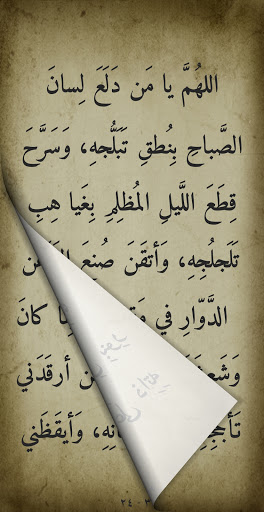 اللهُمَّ يا مَن دَلَعَ لِسانَ
الصَّباحِ بِنُطقِ تَبَلُّجهِ، وَسَرَّحَ
قِطَعَ اللَّيلِ المُظلِمِ بِغَيا هِبِ
تَلَجلُجِهِ، وَأتقَنَ صُنِعَ
الدَّوّارِ في كانَ
أرقَدَني
وَأيقَظَني